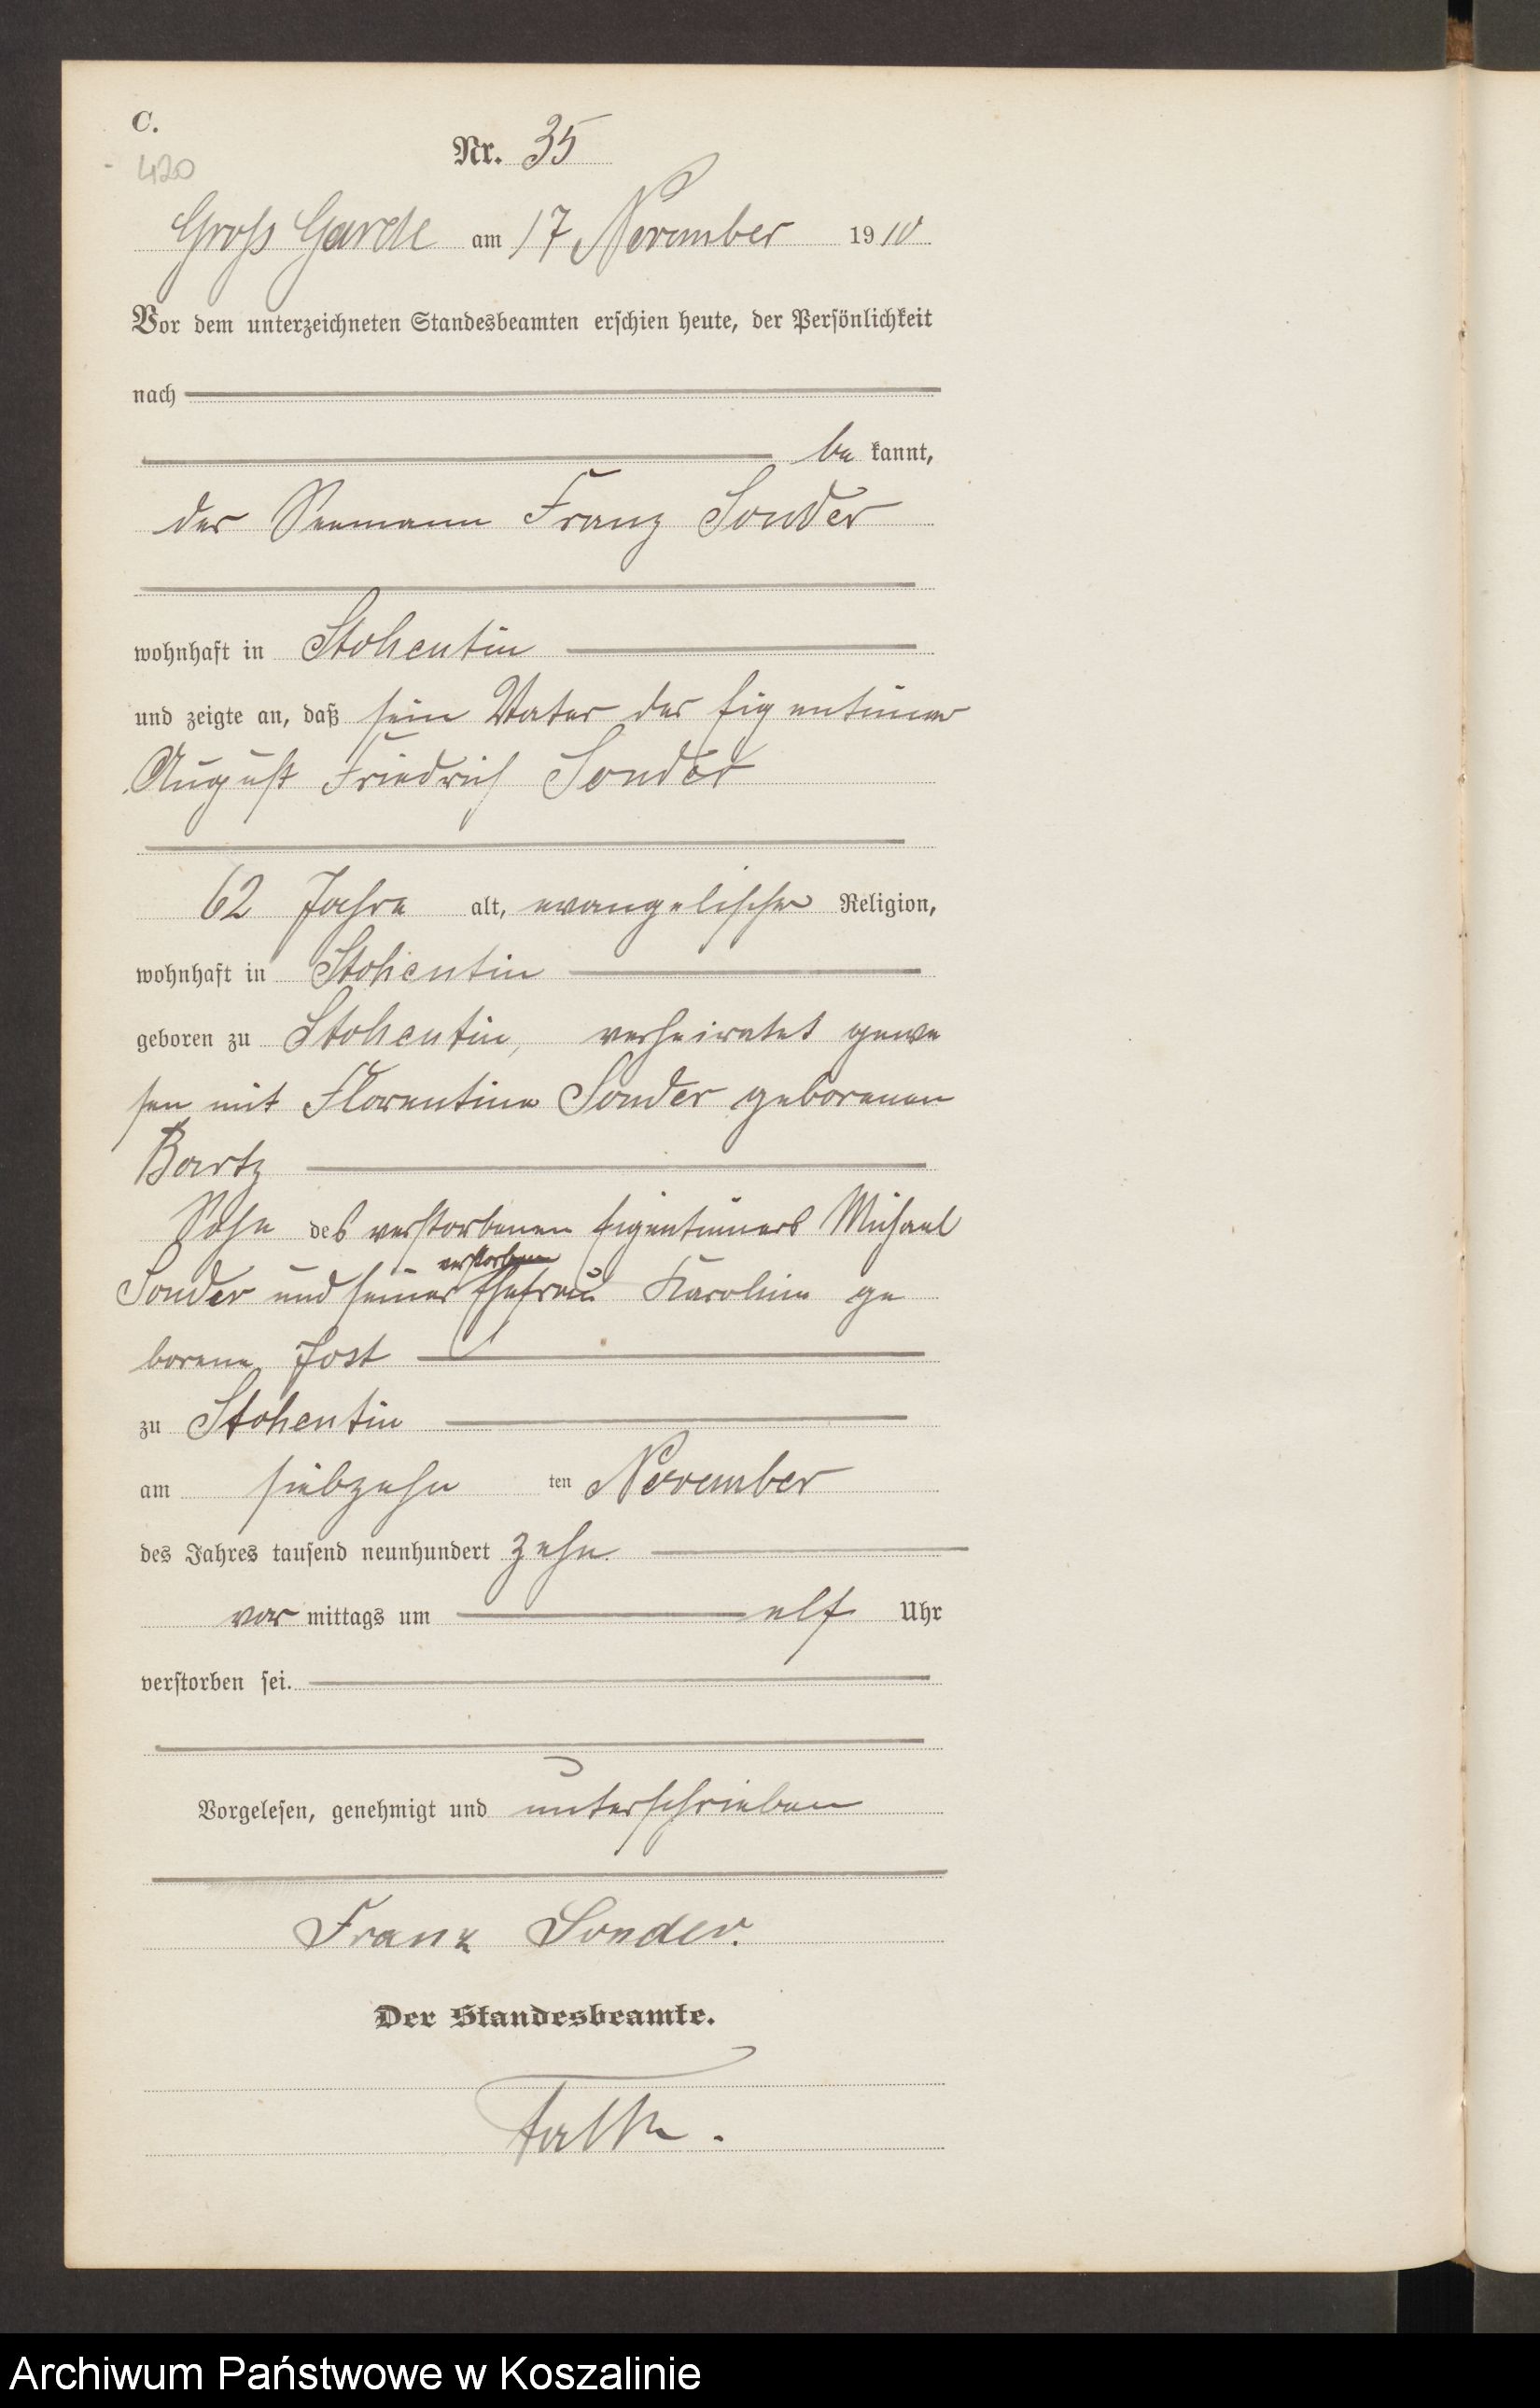 C.
420
Nr. 35
Groß Garde am 17 November 1910
Vor dem unterzeichneten Standesbeamten erschien heute, der Persönlichkeit
nach
be kannt,
der Seemann Franz Sonder
wohnhaft in Stohentin
und zeigte an, daß sein Vater der Eigentümer
August Friedrich Sonder
62 Jahre alt, evangelischer Religion,
wohnhaft in Stohentin
geboren zu Stohentin, verheiratet gewe
sen mit Florentine Sonder geborenen
Bartz
Sohn des verstorbenen Eigentümers Michael
verstorbenen
Sonder und seiner Ehefrau Karoline ge
borene Jost
zu Stohentin
am siebzehn ten November
des Jahres tausend neunhundert zehn
vor mittags um elf Uhr
verstorben sei.
Vorgelesen, genehmigt und unterschrieben
Franz Sonder.
Der Standesbeamte.
Archiwum Państwowe w Koszalinie